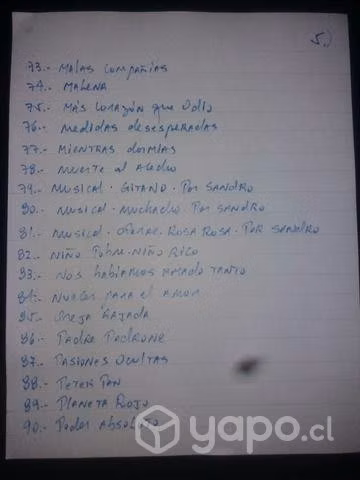 5.)
73.- MALAS COMPAÑIAS
74.- MALENA
75.- MÁS CORAZÓN que Odio
76.- medidas desesperadas
77.- MIENTRAS dormías
78.- MUERTE al Acecho
79.- MUSICAL - GITANO - Por SANDRO
80.- MUSICAL - Muchacho - Por SANDRO
81.- MUSICAL - ROSA ROSA - Por SANDRO
82.- NIÑO POBRE - NIÑO RICO
83.- NOS habíamos AMADO TANTO
84.- PARA el AMOR
85.- Oreja RAJADA
86.- PADRE PADRONE
87.- PASIONES OCULTAS
88.- PETER PAN
89.- PLANETA ROJO
90.- PODER ABSOLUTO
yapo.cl